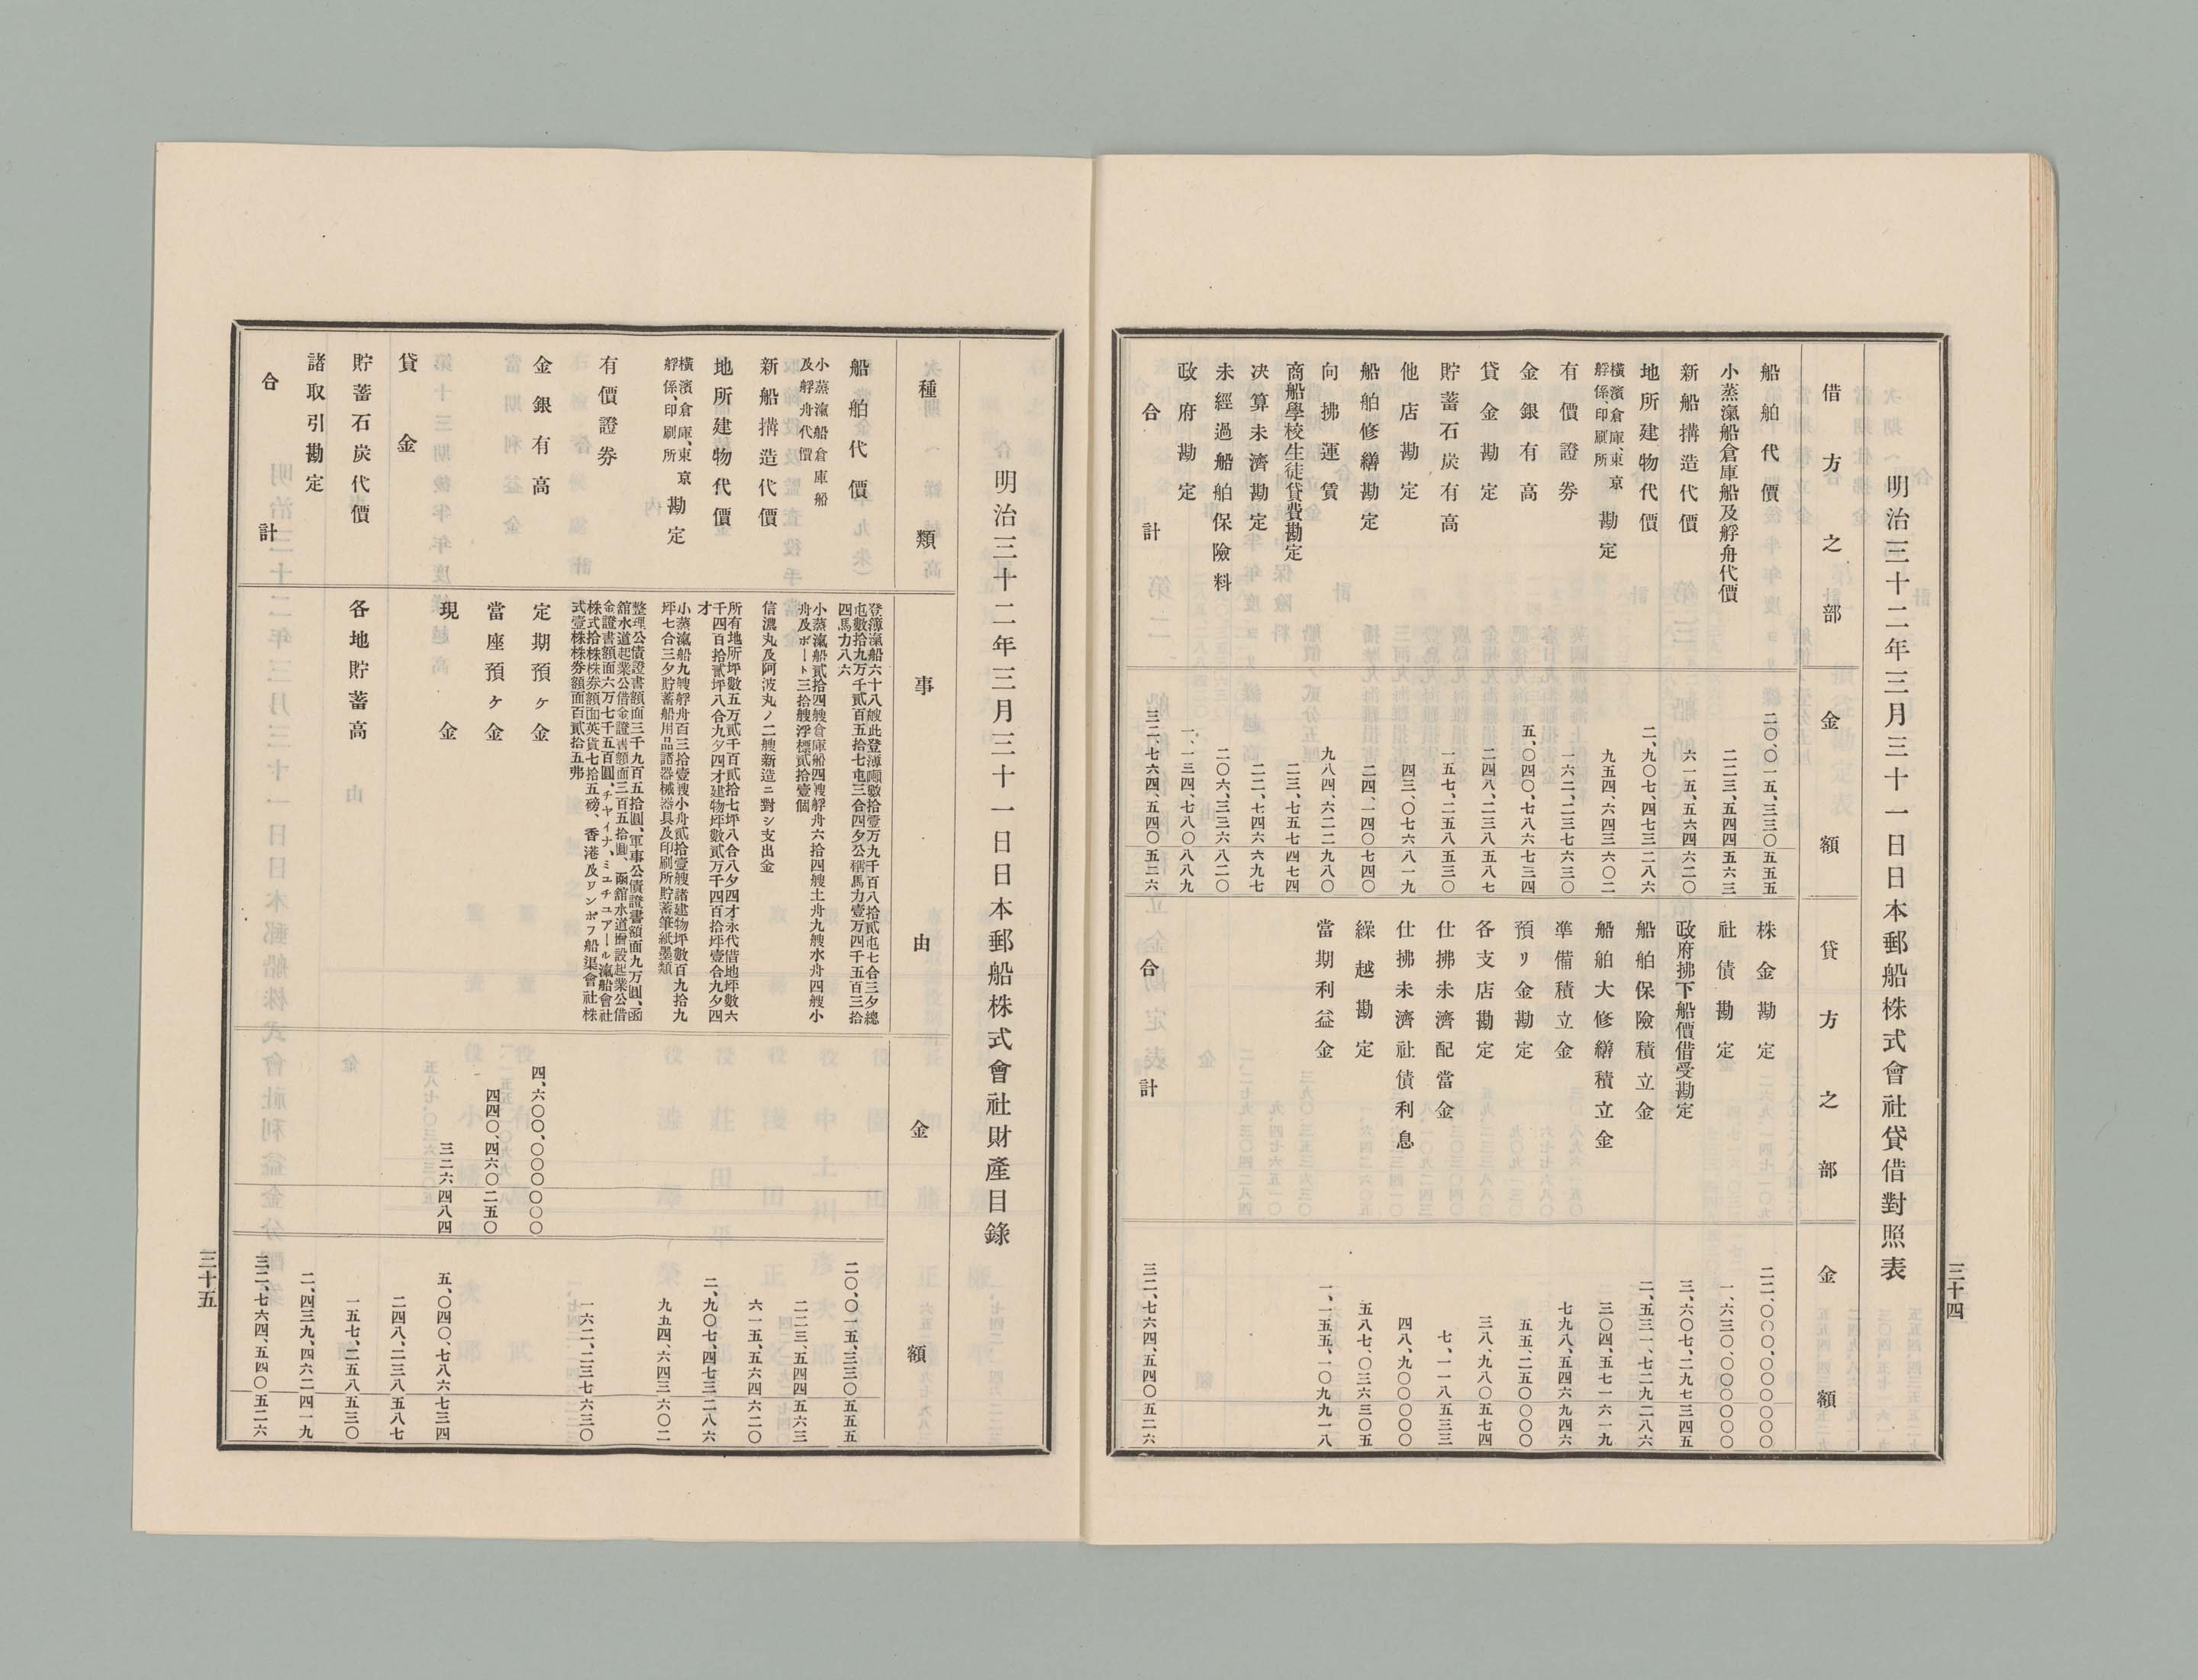 明治三十二年三月三十一日日本郵船株式會社貸借對照表
借方之部 金額 貸方之部 金額
船舶代價 二〇、〇一五、三三〇五五五 株金勘定 二二、〇〇〇、〇〇〇〇〇〇
小蒸滊船倉庫船及艀舟代價 二二三、五四四五六三 社債勘定 一、六三〇、〇〇〇〇〇〇
新船搆造代價 六一五、五六四六二〇 政府拂下船價借受勘定 三、六〇七、二九七三四五
地所建物代價 二、九〇七、四七三二八六 船舶保險積立金 二、五三一、七二九二八六
橫濱倉庫、東京艀係、印刷所勘定 九五四、六四三六〇二 船舶大修繕積立金 三〇四、五七一六一九
有價證券 一六二、二三七六三〇 準備積立金 七九八、五四六九四六
金銀有高 五、〇四〇、七八六七三四 預リ金勘定 五五、二五〇〇〇〇
貸金勘定 二四八、二三八五八七 各支店勘定 三八、九八〇五七四
貯蓄石炭有高 一五七、二五八五三〇 仕拂未濟配當金 七、一一八五三三
他店勘定 四三、〇七六八一九 仕拂未濟社債利息 四八、九〇〇〇〇〇
船舶修繕勘定 二四、一四〇七四〇 繰越勘定 五八七、〇三六三〇五
向拂運賃 九八四、六二二九八〇 當期利益金 一、一五五、一〇九九一八
商船學校生徒貸費勘定 二三、七五七四七四
決算未濟勘定 二二、七四六六九七
未經過船舶保險料 二〇六、三三六八二〇
政府勘定 一、一三四、七八〇八八九
合計 三二、七六四、五四〇五二六 合計 三二、七六四、五四〇五二六
三十四
明治三十二年三月三十一日日本郵船株式會社財產目錄
種類 事由 金額
船舶代價 登簿滊船六十八艘此登簿噸數拾壹万九千百八拾貳屯七合三夕總屯數拾九万千貳百五拾七屯三合四夕公稱馬力壹万四千五百三拾四馬力八六 二〇、〇一五、三三〇五五五
小蒸滊船倉庫船及艀舟代價 小蒸滊船貳拾四艘倉庫船四艘艀舟六拾四艘土舟九艘水舟四艘小舟及ボート三拾艘浮標貳拾壹個 二二三、五四四五六三
新船搆造代價 信濃丸及阿波丸ノ二艘新造ニ對シ支出金 六一五、五六四六二〇
地所建物代價 所有地所坪數五万貳千百貳拾七坪八合八夕四才永代借地坪數六千四百拾貳坪八合九夕四才建物坪數貳万千四百拾坪壹合九夕四才 二、九〇七、四七三二八六
橫濱倉庫、東京艀係、印刷所勘定 小蒸滊船九艘艀舟百三拾壹艘小舟貳拾壹艘諸建物坪數百九拾九坪七合三夕貯蓄船用品諸器械器具及印刷所貯蓄筆紙墨類 九五四、六四三六〇二
有價證券 整理公債證書額面三千九百五拾圓、軍事公債證書額面九万圓、函舘水道起業公借金證書額面三百五拾圓、函舘水道增設起業公借金證書額面六万七千五百圓、チヤイナ、ミユチユアール滊船會社株式拾株株券額面英貨七拾五磅、香港及ワンポフ船渠會社株式壹株株券額面百貳拾五弗 一六二、二三七六三〇
金銀有高 定期預ヶ金 四、六〇〇、〇〇〇〇〇〇
當座預ヶ金 四四〇、四六〇二五〇
現金 三二六四八四 五、〇四〇、七八六七三四
貸金 二四八、二三八五八七
貯蓄石炭代價 各地貯蓄高 一五七、二五八五三〇
諸取引勘定 二、四三九、四六二四一九
合計 三二、七六四、五四〇五二六
三十五